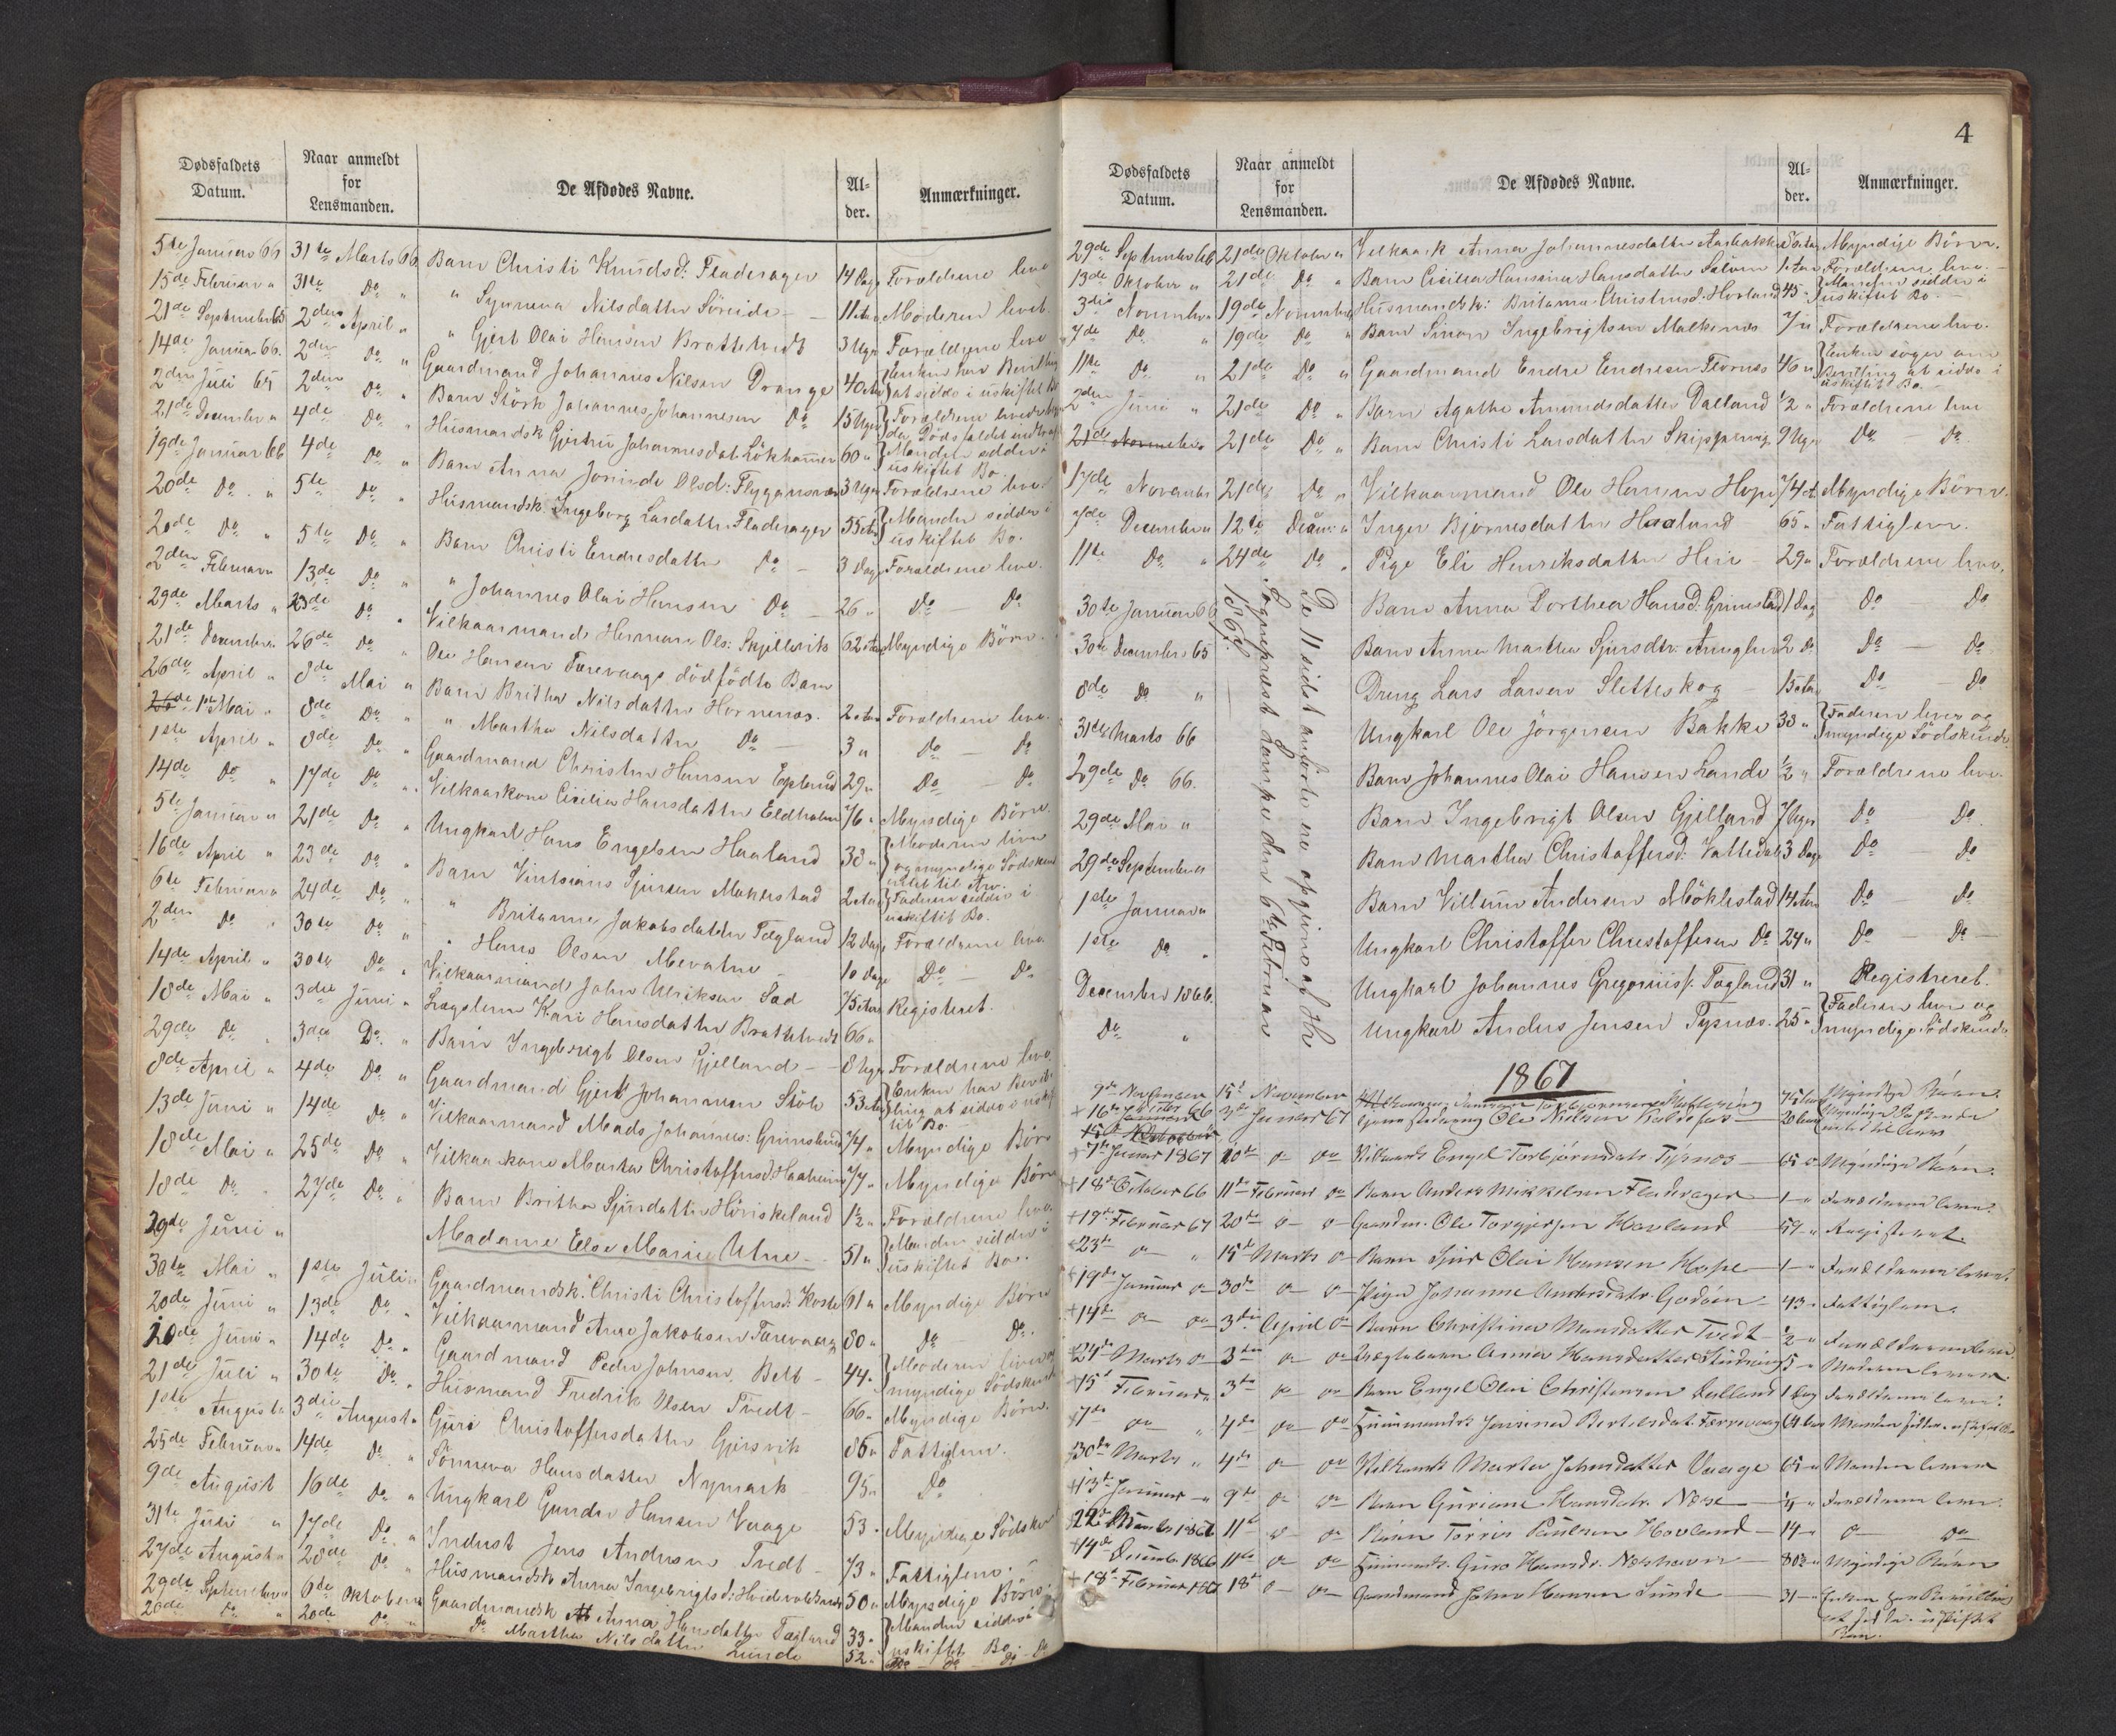 Dødsfaldets Datum. Naar anmeldt for Lensmanden. De Afdødes Navne. Al-der. Anmærkninger.
5te Januar 66 31te Marts 66 Barn Christi Knudsd: Fladerager 14 Dage Forældrene leve
15de Februar " 31te Do " " Synneva Nilsdatter Söreide 11 Moderen lever.
21de September 65 2den April " " Gjert Olai Hansen Brattetvedt 3 Uger Forældrene leve
14de Januar 66. 2den Do " Gaardmand Johannes Nilsen Drange 40 Enken har Bevilling at sidde i uskiftet Bo
2den Juli 65 2den Do " Barn Störk Johannes Johannesen Do 15 Uger
21de December " 4de Do " Husmandsk Gjertru Johannesdat. Lökhammer 60 " Manden sidder i uskiftet Bo.
19de Januar 66 4de Do " Barn Anna Olsd: 3 Uger Forældrene leve.
20de Do " 5te Do " Husmandsk. Ingeborg Larsdatter Fladerager 55 Manden sidder i uskiftet Bo.
20de Do " 5te Do " Barn Christi Endresdatter Do - 3 Dage Forældrene leve.
2den Februar 13de Do " " Johannes Olai Hansen Do - 26 " Do - Do
29de Marts " 23de Do " Vilkaarmand Herman Ols: Skjellevik 62 Myndige Börn.
21de December 26de Do " Ole Hansen Terevaage dödfödte Barn
26de April " 8de Mai " Barn Britha Nilsdatter Hornenes. 2 Forældrene leve.
1ste Mai " 8de Do " " Martha Nilsdatter Do - 3 " Do - Do
1ste April " 8de Do " Gaardmand Christen Hansen Epland 29 " Do - Do
14de Do " 17de Do " Vilkaarkone Cicilia Hansdatter Eldholm 76 " Myndige Börn.
5te Januar " 21de Do " Ungkarl Hans Engelsen Haaland 38 " Moderen lever og myndige Södskende
16de April " 23de Do " Barn Sjursen Maklestad 2 Faderen sidder i uskiftet Bo.
6te Februar " 24de Do " " Britanne Jakobsdatter Tægland 12 Dage Forældrene leve
2den Do " 30te Do " " Hans Olsen Mevatne - 10 Dage Do - Do
14de April " 30te Do " Vilkaarmand John Ulriksen Sæd 75 Registreret.
18de Mai " 3die Juni " Lægslem Kari Hansdatter Brattetvedt 66 "
29de Do " 3die Do " Barn Ingebrigt Olsen Gjelland - 8 Uger Forældrene leve
8de April " 4de Do " Gaardmand Gjert Johannesen Stöle 53 Enken har Bevilling at sidde i uskiftet Bo
13de Juni " 14de Do " Vilkaarmand Mads Johannes: Grimsland 74 " Myndige Börn
18de Mai " 25de Do " Vilkaarkone Marta Christoffersd. Haaheim 77 " Myndige Börn
18de Do " 27de Do " Barn Britha Sjursdatter Höviskeland 1½ " Forældrene leve.
29de Juni " Madame Else Marie Utne - 51 " Manden sidder i uskiftet Bo.
30te Mai " 1ste Juli " Gaardmandsk. Christi Christoffersd: 61 " Myndige Börn
20de Juni " 13de Do " Vilkaarmand Jakobsen Terevaag 80 " Do Do.
20de Juni " 14de Do " Gaardmand Peder Johnsen Belt - 44 " Moderen lever og myndige Södskende
21de Juli " 30te Do " Husmand Fredrik Olsen Tvedt - 66 " Myndige Börn.
1ste August " 3die August " Guro Christoffersdatter Gjersvik 86 " Fattiglem.
25de Februar " 14de Do " Sönneva Hansdatter Nymark 95 " Do
9de August 16de Do " Ungkarl Gunder Hansen Vaage 53 " Myndige Södskende
31te Juli " 17de Do " Inderst Jens Andersen Tvedt - 73 " Fattiglem.
27de August " 28de Do " Husmandsk Anna Ingebrigtsd: 50 " Myndige Börn.
29de September " 6te Oktober " Gaardmandsk Anna Hansdatter Tægland 33 " Manden sidder i uskiftet Bo.
20de Do " 20de Do " Do Martha Nilsdatter Lunde 52 " Do - Do
4
Dødsfaldets Datum. Naar anmeldt for Lensmanden. De Afdødes Navne. Al-der. Anmærkninger.
29de September 66 21de Oktober " Velkaark Anna Johannesdatter Myndige Börn.
13de Oktober " 21de Do " Barn Cicilia Hansine Hansdatter 1 Forældrene leve. -
3die November 19de November Husmandsk: Britanna Christensd. Hovland 45 " Manden sidder i uskiftet Bo. -
7de Do " 19de Do " Barn Simon Ingebrigtsen Malkenes 7 " Forældrene leve.
11te Do " 21de Do " Gaardmand Endre Endresen Flornes 46 " Enken søger om Bevilling at sidde i uskiftet Bo. -
2den Juni " 21de Do " Barn Agathe Amundsdatter Dalland ½ " Forældrene leve
21de November 21de Do " Barn Christi Larsdatter Skjippervig 9 Uger Do - Do.
17de November 21de Do " Vilkaarmand Ole Hansen Hope 74 Myndige Börn.
7de December " 12te Decem: " Inger Bjornesdatter Haaland 65 " Fattiglem.
11te Do " 24de Do " Pige Eli Henriksdatter 29 " Forældrene leve.
30te Januar 66 Barn Anna Dorthea Hansd: Grimsland 1 Dag Do Do
30te December 65 Barn Anna Martha Sjursdtr. 2 Do Do - Do
8de Do " Dreng Lars Larsen Sletteskog 15 Do - Do
31te Marts 66 Ungkarl Ole Jörgensen Bakke 33 " Faderen lever og myndige Södskende
29de Do 66. Barn Johannes Olai Hansen Lande ½ " Forældrene leve.
29de Mai " Barn Ingebrigt Olsen Gjelland 7 Uger Do Do.
29de September Barn Martha Christoffersd: 3 Dage Do - Do
1ste Januar " Barn Villum Andersen Möklestad 14 Do - Do
1ste Do " Ungkarl Christoffer Christoffersen Do 24 " Do Do -
December 1866. Ungkarl Johannes Gregoriuss. Tægland 31 " Registreret.
Do " Ungkarl Anders Jensen Tysnæs. 25 " Faderen lever og myndige Södskende
De 11 sidst anførte ere opgivne af Hr
Sogneprest Lampe den 6te Februar
1867.
1867
15d November 75 Myndige Börn.
16de 66 3de Januar 67 Ole Nielsen
7de Januar 1867 20de Engel Torbjörnsdatr Tysnes 65 Myndige Börn.
18de October 66 11te Februar Barn Anders Mikkelsen Fladerager - 1 - Forældrene lever.
19de Februar 67 20de Gaardm. Ole Torgjersen Hovland 57 - Registeret.
23de 15de Marts Barn Sjur Olai Hansen Hope - 1 - Forældrene lever.
19de Januar 30te Pigen Johanne Andersdatr. Godöen - 43 - Fattiglem.
14de 3die April Barn Christine Monsdatter Tvedt - ½ - Forældrene lever.
24de Marts 3die Anna Hansdatter 5 - Moderen lever.
15de Februar 3de Barn Engel Olai Christensen Dalland 1 Dag Forældrene lever.
7de 4de Husmandsk Bertelsdat. Terrevaag 64
30te Marts " 4de Vilkaarsk Marta Johnsdatter Vaage 65 - Manden lever
13de Januar 9de Barn Guriane Hansdatr. Næse Forældrene lever.
22de 11te Barn Torris Paulsen Hovland - 14 -
14de Decemb. 1866 11te Husmandsk. Guro Hansdr. 80 Myndige Börn
18de Februar 1867 18de Gaardmand John Hansen Sunde - 31 - Enken har Bevilling